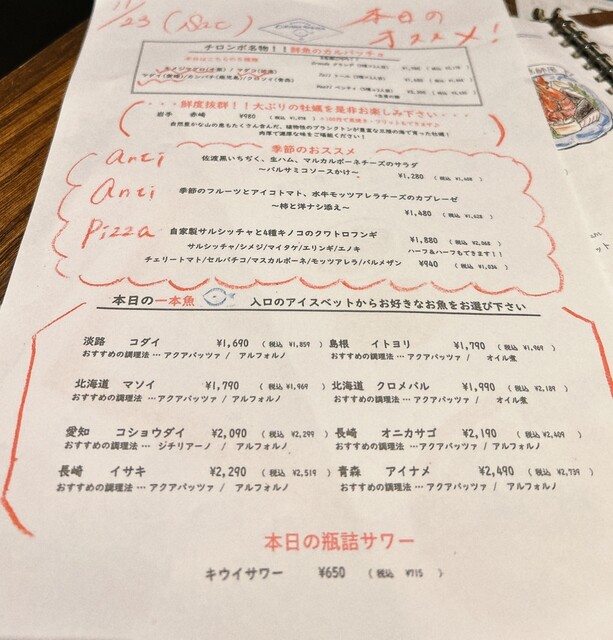 11/23 (Sat)
本日のオススメ!
チロンボ名物!!鮮魚のカルパッチョ
・・・鮮度抜群!!大ぶりの牡蠣を是非お楽しみ下さい・・・
岩手 赤崎 ¥980
自然豊かな山の恵もたくさん含んだ、植物性のプランクトンが豊富な三陸の海で育った牡蠣!
肉厚で濃厚な味をご堪能ください!
季節のおススメ
anti 佐渡黒いちぢく、生ハム、マルカルポーネチーズのサラダ
〜バルサミコソースかけ〜 ¥1,280 (税込 ¥1,408 )
anti 季節のフルーツとアイコトマト、水牛モッツアレラチーズのカプレーゼ
〜柿と洋ナシ添え〜 ¥1,480 (税込 ¥1,628 )
Pizza 自家製サルシッチャと4種キノコのクワトロフンギ ¥1,880 (税込 ¥2,068 )
サルシッチャ/シメジ/マイタケ/エリンギ/エノキ ハーフ&ハーフもできます!!
チェリートマト/セルバチコ/マスカルポーネ/モッツアレラ/パルメザン ¥940 (税込 ¥1,034 )
本日の一本魚 入口のアイスペットからお好きなお魚をお選び下さい
淡路 コダイ ¥1,690 (税込 ¥1,859 ) 島根 イトヨリ ¥1,790 (税込 ¥1,969 )
おすすめの調理法 … アクアパッツァ / アルフォルノ おすすめの調理法 … アクアパッツァ / オイル煮
北海道 マソイ ¥1,790 (税込 ¥1,969 ) 北海道 クロメバル ¥1,990 (税込 ¥2,189 )
おすすめの調理法 … アクアパッツァ / アルフォルノ おすすめの調理法 … アクアパッツァ / オイル煮
愛知 コショウダイ ¥2,090 (税込 ¥2,299 ) 長崎 オニカサゴ ¥2,190 (税込 ¥2,409 )
おすすめの調理法 … ジチリアーノ / アルフォルノ おすすめの調理法 … アクアパッツァ / アルフォルノ
長崎 イサキ ¥2,290 (税込 ¥2,519 ) 青森 アイナメ ¥2,490 (税込 ¥2,739 )
おすすめの調理法 … アクアパッツァ / アルフォルノ おすすめの調理法 … アクアパッツァ / アルフォルノ
本日の瓶詰サワー
キウイサワー ¥650 (税込 ¥715 )